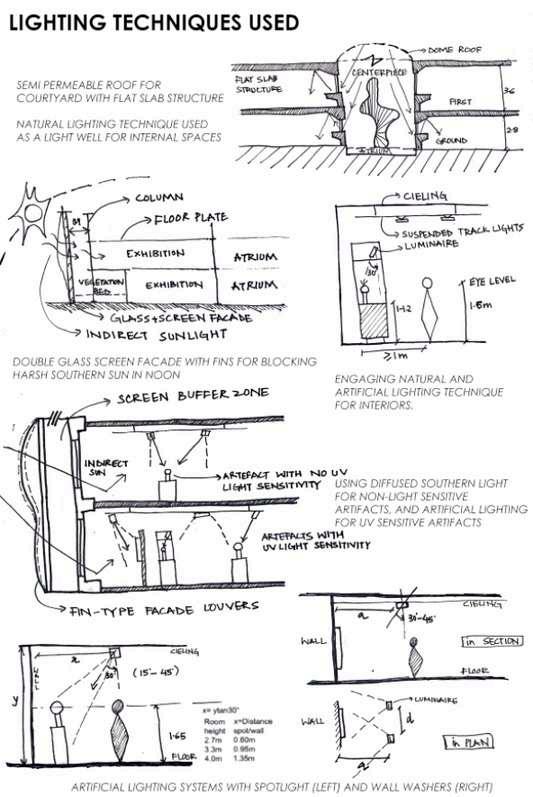 LIGHTING TECHNIQUES USED
SEMI PERMEABLE ROOF FOR
COURTYARD WITH FLAT SLAB STRUCTURE
NATURAL LIGHTING TECHNIQUE USED
AS A LIGHT WELL FOR INTERNAL SPACES
DOME ROOF
FLAT SLAB
STRUCTURE
CENTERPIECE
FIRST
3.6
GROUND
2.8
ATRIUM
COLUMN
FLOOR PLATE
EXHIBITION
ATRIUM
VEGETATION
BED
EXHIBITION
ATRIUM
GLASS+SCREEN FACADE
INDIRECT SUNLIGHT
CIELING
SUSPENDED TRACK LIGHTS
LUMINAIRE
30°
EYE LEVEL
1.5m
1.12
≥1m
DOUBLE GLASS SCREEN FACADE WITH FINS FOR BLOCKING
HARSH SOUTHERN SUN IN NOON
ENGAGING NATURAL AND
ARTIFICIAL LIGHTING TECHNIQUE
FOR INTERIORS.
SCREEN BUFFER ZONE
INDIRECT
SUN
ARTEFACT WITH NO UV
LIGHT SENSITIVITY
ARTEFACTS WITH
UV LIGHT SENSITIVITY
FIN-TYPE FACADE LOUVERS
USING DIFFUSED SOUTHERN LIGHT
FOR NON-LIGHT SENSITIVE
ARTIFACTS, AND ARTIFICIAL LIGHTING
FOR UV SENSITIVE ARTIFACTS
CIELING
a
30°-45°
WALL
in SECTION
FLOOR
CIELING
x
30°
(15°-45°)
WALL
y
1.65
FLOOR
x= ytan30°
Room x=Distance
height spot/wall
2.7m 0.60m
3.3m 0.95m
4.0m 1.35m
LUMINAIRE
WALL
d
in PLAN
a
ARTIFICIAL LIGHTING SYSTEMS WITH SPOTLIGHT (LEFT) AND WALL WASHERS (RIGHT)